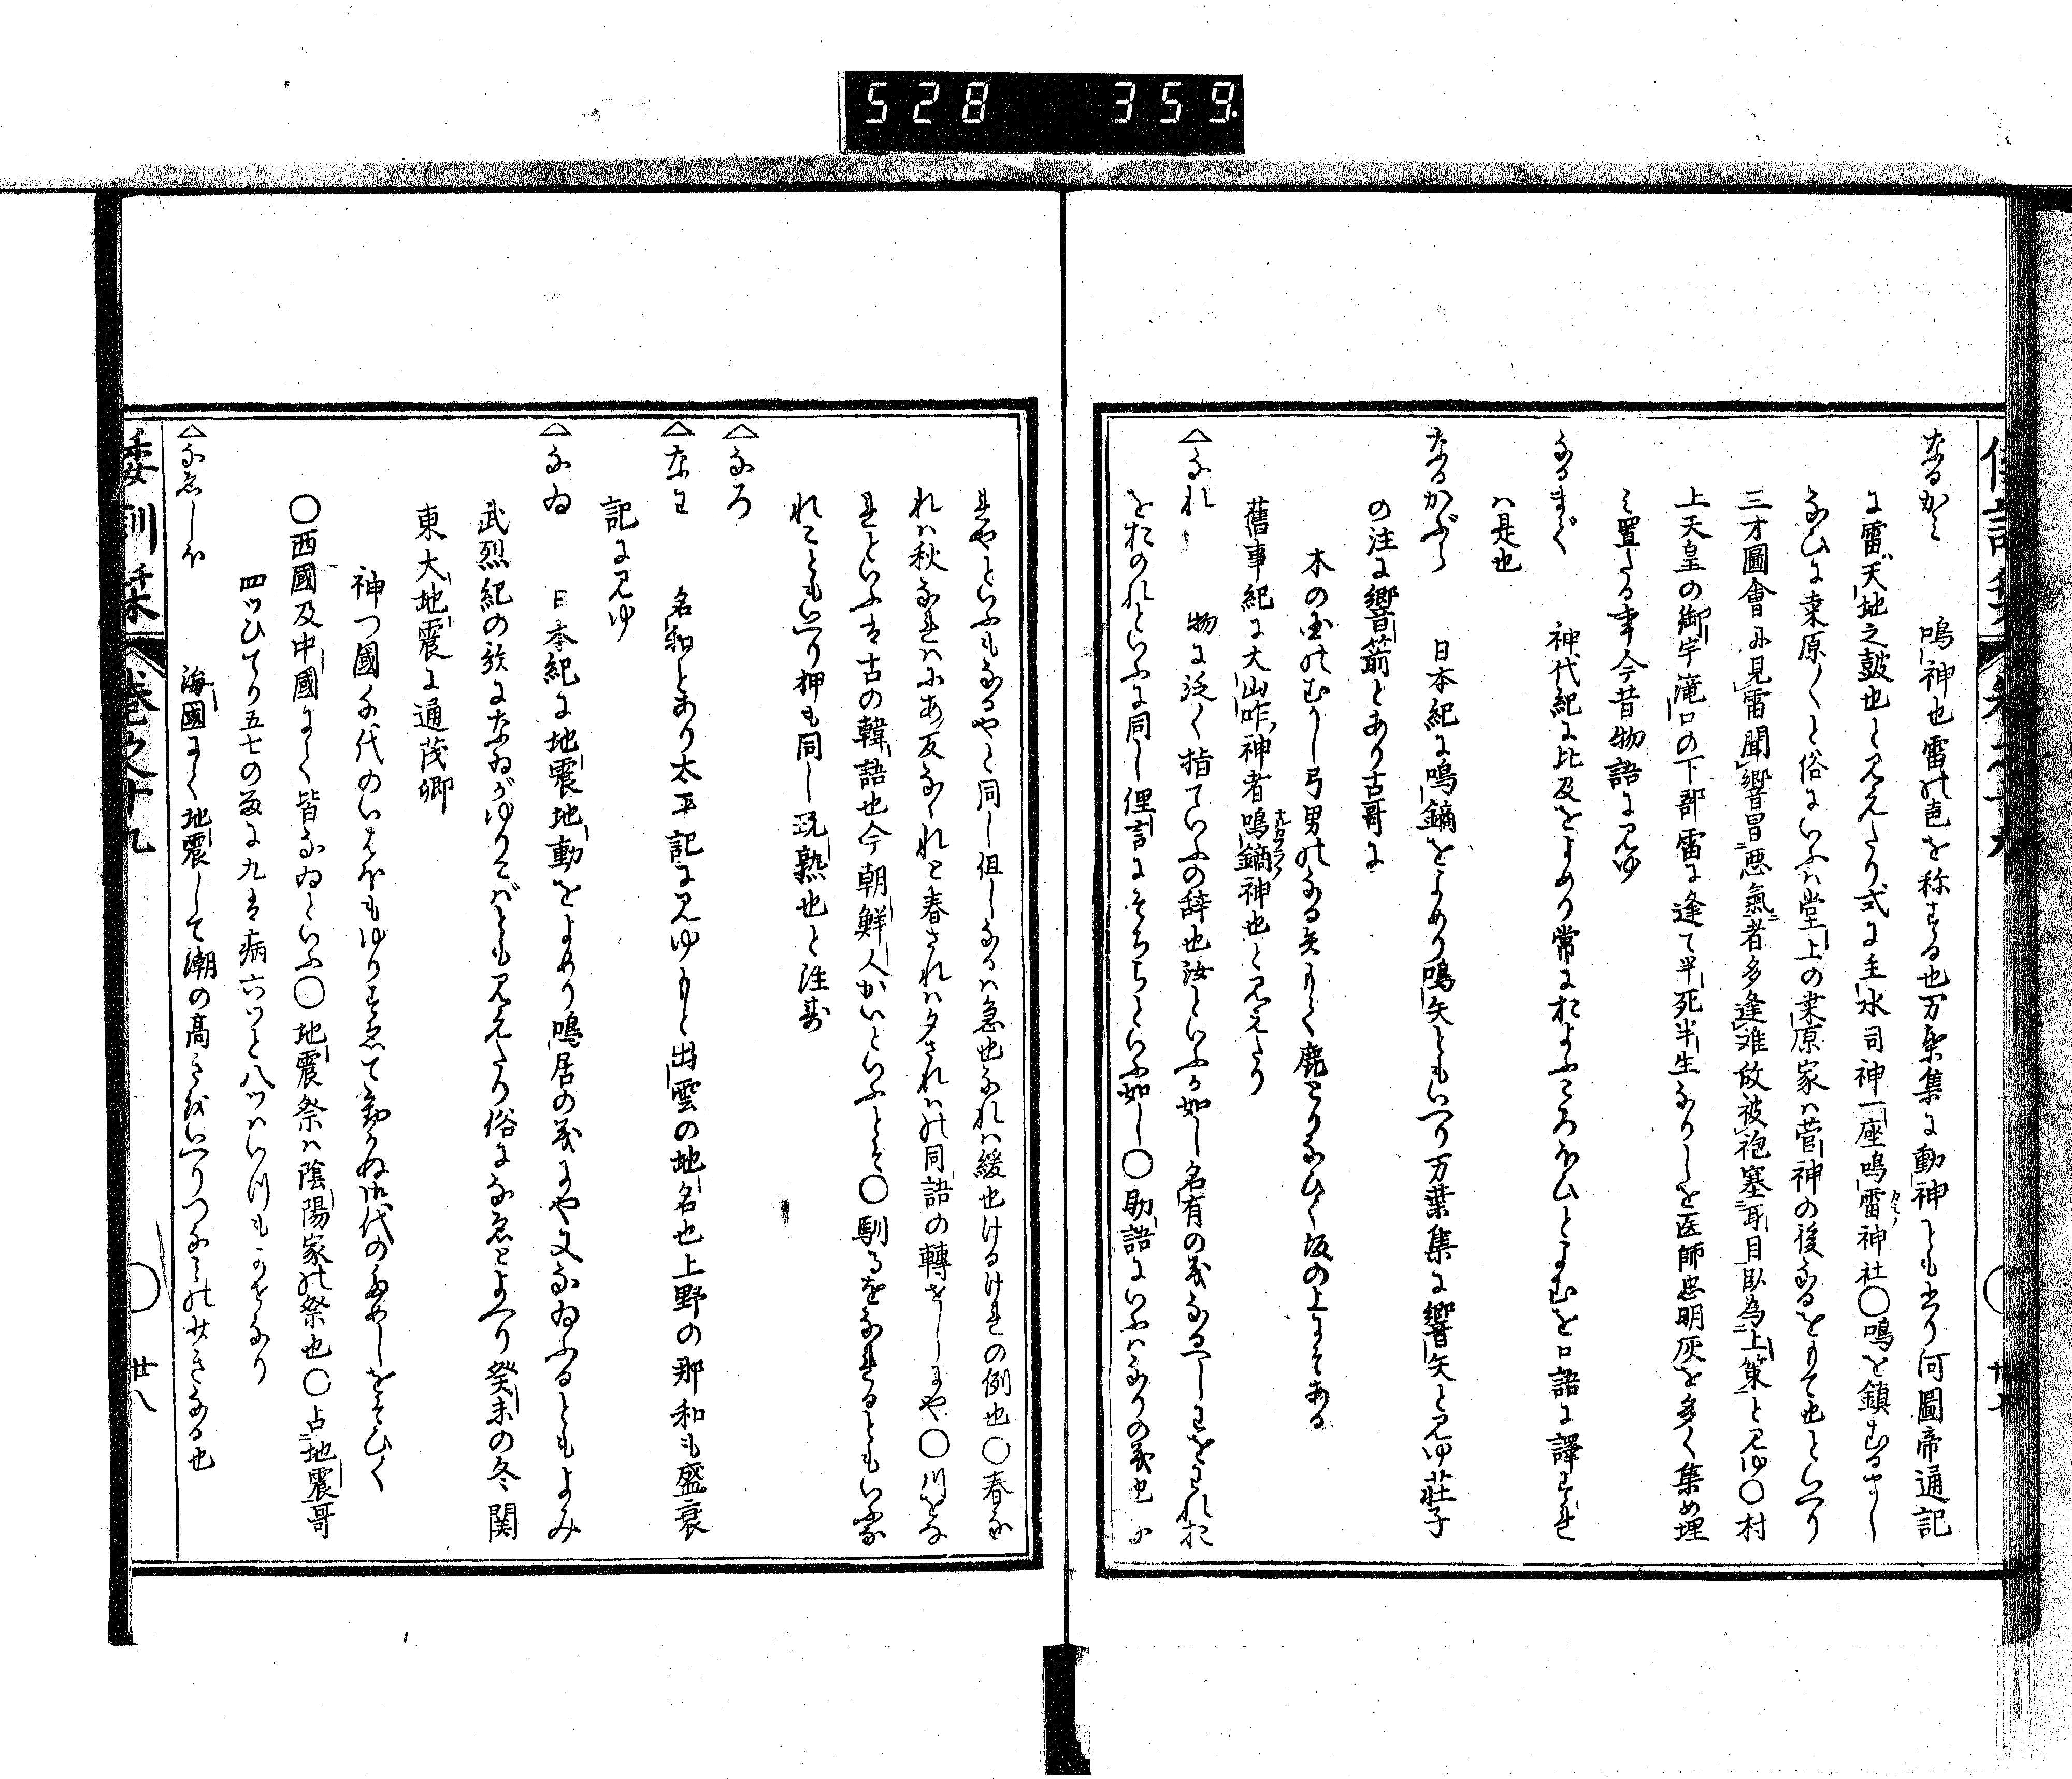 528 359.
なるかみ 鳴神也雷の色を称する也万葉集に動神とも書り河圖帝通記
に雷天地之鼓也と見えたり式に主水司神一座鳴雷神社〇鳴を鎮むるまし
なひに桒原〱と俗にいふハ堂上の桒原家ハ菅神の後なるをもて也といへり
三才圖會に見雷聞響冒悪氣者多逢难故被袍塞耳目臥為上策と見ゆ〇村
上天皇の御宇滝口の下部雷に逢て半死半生なりしを医師忠明灰を多く集め埋
み置たる事今昔物語に見ゆ
なるまで 神代紀に比及をよめり常におよふころほひとよむを口語に譯すれ
ハ是也
なるかぶら 日本紀に鳴鏑をよめり鳴矢ともいへり万葉集に響矢と見ゆ荘子
の注に響箭とあり古哥に
木の国のむかし弓男のなる矢もて鹿とりなひく坂の上にそある
舊事紀に大山咋神者鳴鏑神也と見えたり
△なれ 物に泛く指ていふの辞也汝といふか如し名有の義なるへしわをわれお
をおのれといふに同し俚言にそちらといふ如し〇助語にいふハなりの義也よ
れやといふもなるやと同し但しなるハ急也なれハ緩也けるけれの例也〇春な
れハ秋なれハなあ反なくれと春されハ夕されハの同語の轉せしにや〇川をな
れといふは古の韓語也今朝鮮人かいといふとそ〇馴るをなれるともいふな
れこともいへり狎も同し玩熟也と注す
△なろ
△なわ 名和とあり太平記に見ゆもと出雲の地名也上野の那和も盛衰
記に見ゆ
△なゐ 日夲紀に地震地動をよめり鳴居の義にや又なゐふるともよみ
武烈紀の哥になゐがゆりこばとも見えたり俗になゑとよへり癸未の冬関
東大地震に通茂卿
神つ國千代のいはほもゆりすゑて動かぬ御代のためしをそひく
〇西國及中國にて皆なゐといふ〇地震祭ハ陰陽家の祭也〇占地震哥
四ツひてり五七の雨に九は病六ツと八ツハいつも風としるへし
△なゑしほ 海國にて地震して潮の高きをいへりつなみのおきなる也
倭訓栞 巻之十九 廿八